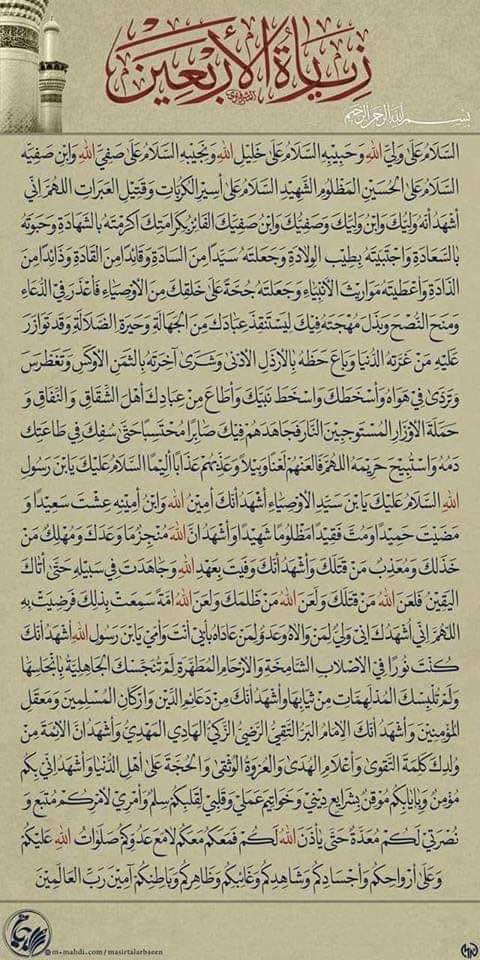 زيارة الأربعين
بسم الله الرحمن الرحيم
السَّلَامُ عَلَى وَلِيِّ اللهِ وَحَبِيبِهِ السَّلَامُ عَلَى خَلِيلِ اللهِ وَنَجِيبِهِ السَّلَامُ عَلَى صَفِيِّ اللهِ وَابْنِ صَفِيِّهِ
السَّلَامُ عَلَى الْحُسَيْنِ الْمَظْلُومِ الشَّهِيدِ السَّلَامُ عَلَى أَسِيرِ الْكُرُبَاتِ وَقَتِيلِ الْعَبَرَاتِ اللهُمَّ إِنِّي
أَشْهَدُ أَنَّهُ وَلِيُّكَ وَابْنُ وَلِيِّكَ وَصَفِيُّكَ وَابْنُ صَفِيِّكَ الْفَائِزُ بِكَرَامَتِكَ أَكْرَمْتَهُ بِالشَّهَادَةِ وَحَبَوْتَهُ
بِالسَّعَادَةِ وَاجْتَبَيْتَهُ بِطِيبِ الْوِلَادَةِ وَجَعَلْتَهُ سَيِّدًا مِنَ السَّادَةِ وَقَائِدًا مِنَ الْقَادَةِ وَذَائِدًا مِنَ
الذَّادَةِ وَأَعْطَيْتَهُ مَوَارِيثَ الْأَنْبِيَاءِ وَجَعَلْتَهُ حُجَّةً عَلَى خَلْقِكَ مِنَ الْأَوْصِيَاءِ فَأَعْذَرَ فِي الدُّعَاءِ
وَمَنَحَ النُّصْحَ وَبَذَلَ مُهْجَتَهُ فِيكَ لِيَسْتَنْقِذَ عِبَادَكَ مِنَ الْجَهَالَةِ وَحَيْرَةِ الضَّلَالَةِ وَقَدْ تَوَازَرَ
عَلَيْهِ مَنْ غَرَّتْهُ الدُّنْيَا وَبَاعَ حَظَّهُ بِالْأَرْذَلِ الْأَدْنَى وَشَرَى آخِرَتَهُ بِالثَّمَنِ الْأَوْكَسِ وَتَغَطْرَسَ
وَتَرَدَّى فِي هَوَاهُ وَأَسْخَطَكَ وَاسْخَطَ نَبِيَّكَ وَأَطَاعَ مِنْ عِبَادِكَ أَهْلَ الشِّقَاقِ وَالنِّفَاقِ وَ
حَمَلَةَ الْأَوْزَارِ الْمُسْتَوْجِبِينَ النَّارَ فَجَاهَدَهُمْ فِيكَ صَابِرًا مُحْتَسِبًا حَتَّى سُفِكَ فِي طَاعَتِكَ
دَمُهُ وَاسْتُبِيحَ حَرِيمُهُ اللهُمَّ فَالْعَنْهُمْ لَعْنًا وَبِيلًا وَعَذِّبْهُمْ عَذَابًا أَلِيمًا السَّلَامُ عَلَيْكَ يَابْنَ رَسُولِ
اللهِ السَّلَامُ عَلَيْكَ يَابْنَ سَيِّدِ الْأَوْصِيَاءِ أَشْهَدُ أَنَّكَ أَمِينُ اللهِ وَابْنُ أَمِينِهِ عِشْتَ سَعِيدًا وَ
مَضَيْتَ حَمِيدًا وَمُتَّ فَقِيدًا مَظْلُومًا شَهِيدًا وَأَشْهَدُ انَّ اللهَ مُنْجِزٌ مَا وَعَدَكَ وَمُهْلِكٌ مَنْ
خَذَلَكَ وَمُعَذِّبٌ مَنْ قَتَلَكَ وَأَشْهَدُ أَنَّكَ وَفَيْتَ بِعَهْدِ اللهِ وَجَاهَدْتَ فِي سَبِيلِهِ حَتَّى أَتَاكَ
الْيَقِينُ فَلَعَنَ اللهُ مَنْ قَتَلَكَ وَلَعَنَ اللهُ مَنْ ظَلَمَكَ وَلَعَنَ اللهُ امَّةً سَمِعَتْ بِذَلِكَ فَرَضِيَتْ بِهِ
اللهُمَّ إِنِّي اشْهِدُكَ انِّي وَلِيٌّ لِمَنْ وَالَاهُ وَعَدُوٌّ لِمَنْ عَادَاهُ بِأَبِي أَنْتَ وَأُمِّي يَابْنَ رَسُولِ اللهِ أَشْهَدُ أَنَّكَ
كُنْتَ نُورًا فِي الْأَصْلَابِ الشَّامِخَةِ وَالْأَرْحَامِ الْمُطَهَّرَةِ لَمْ تُنَجِّسْكَ الْجَاهِلِيَّةُ بِأَنْجَاسِهَا
وَلَمْ تُلْبِسْكَ الْمُدْلَهِمَّاتُ مِنْ ثِيَابِهَا وَأَشْهَدُ أَنَّكَ مِنْ دَعَائِمِ الدِّينِ وَأَرْكَانِ الْمُسْلِمِينَ وَمَعْقِلِ
الْمُؤْمِنِينَ وَأَشْهَدُ أَنَّكَ الْإِمَامُ الْبَرُّ التَّقِيُّ الرَّضِيُّ الزَّكِيُّ الْهَادِي الْمَهْدِيُّ وَأَشْهَدُ انَّ الْأَئِمَّةَ مِنْ
وُلْدِكَ كَلِمَةُ التَّقْوَى وَأَعْلَامُ الْهُدَى وَالْعُرْوَةُ الْوُثْقَى وَالْحُجَّةُ عَلَى أَهْلِ الدُّنْيَا وَأَشْهَدُ انِّي بِكُمْ
مُؤْمِنٌ وَبِإِيَابِكُمْ مُوقِنٌ بِشَرَايِعِ دِينِي وَخَوَاتِيمِ عَمَلِي وَقَلْبِي لِقَلْبِكُمْ سِلْمٌ وَأَمْرِي لِأَمْرِكُمْ مُتَّبِعٌ وَ
نُصْرَتِي لَكُمْ مُعَدَّةٌ حَتَّى يَأْذَنَ اللهُ لَكُمْ فَمَعَكُمْ مَعَكُمْ لَا مَعَ عَدُوِّكُمْ صَلَوَاتُ اللهِ عَلَيْكُمْ
وَعَلَى أَرْوَاحِكُمْ وَأَجْسَادِكُمْ وَشَاهِدِكُمْ وَغَائِبِكُمْ وَظَاهِرِكُمْ وَبَاطِنِكُمْ آمِينَ رَبَّ الْعَالَمِينَ
m-mahdi.com/masirtalarbaeen